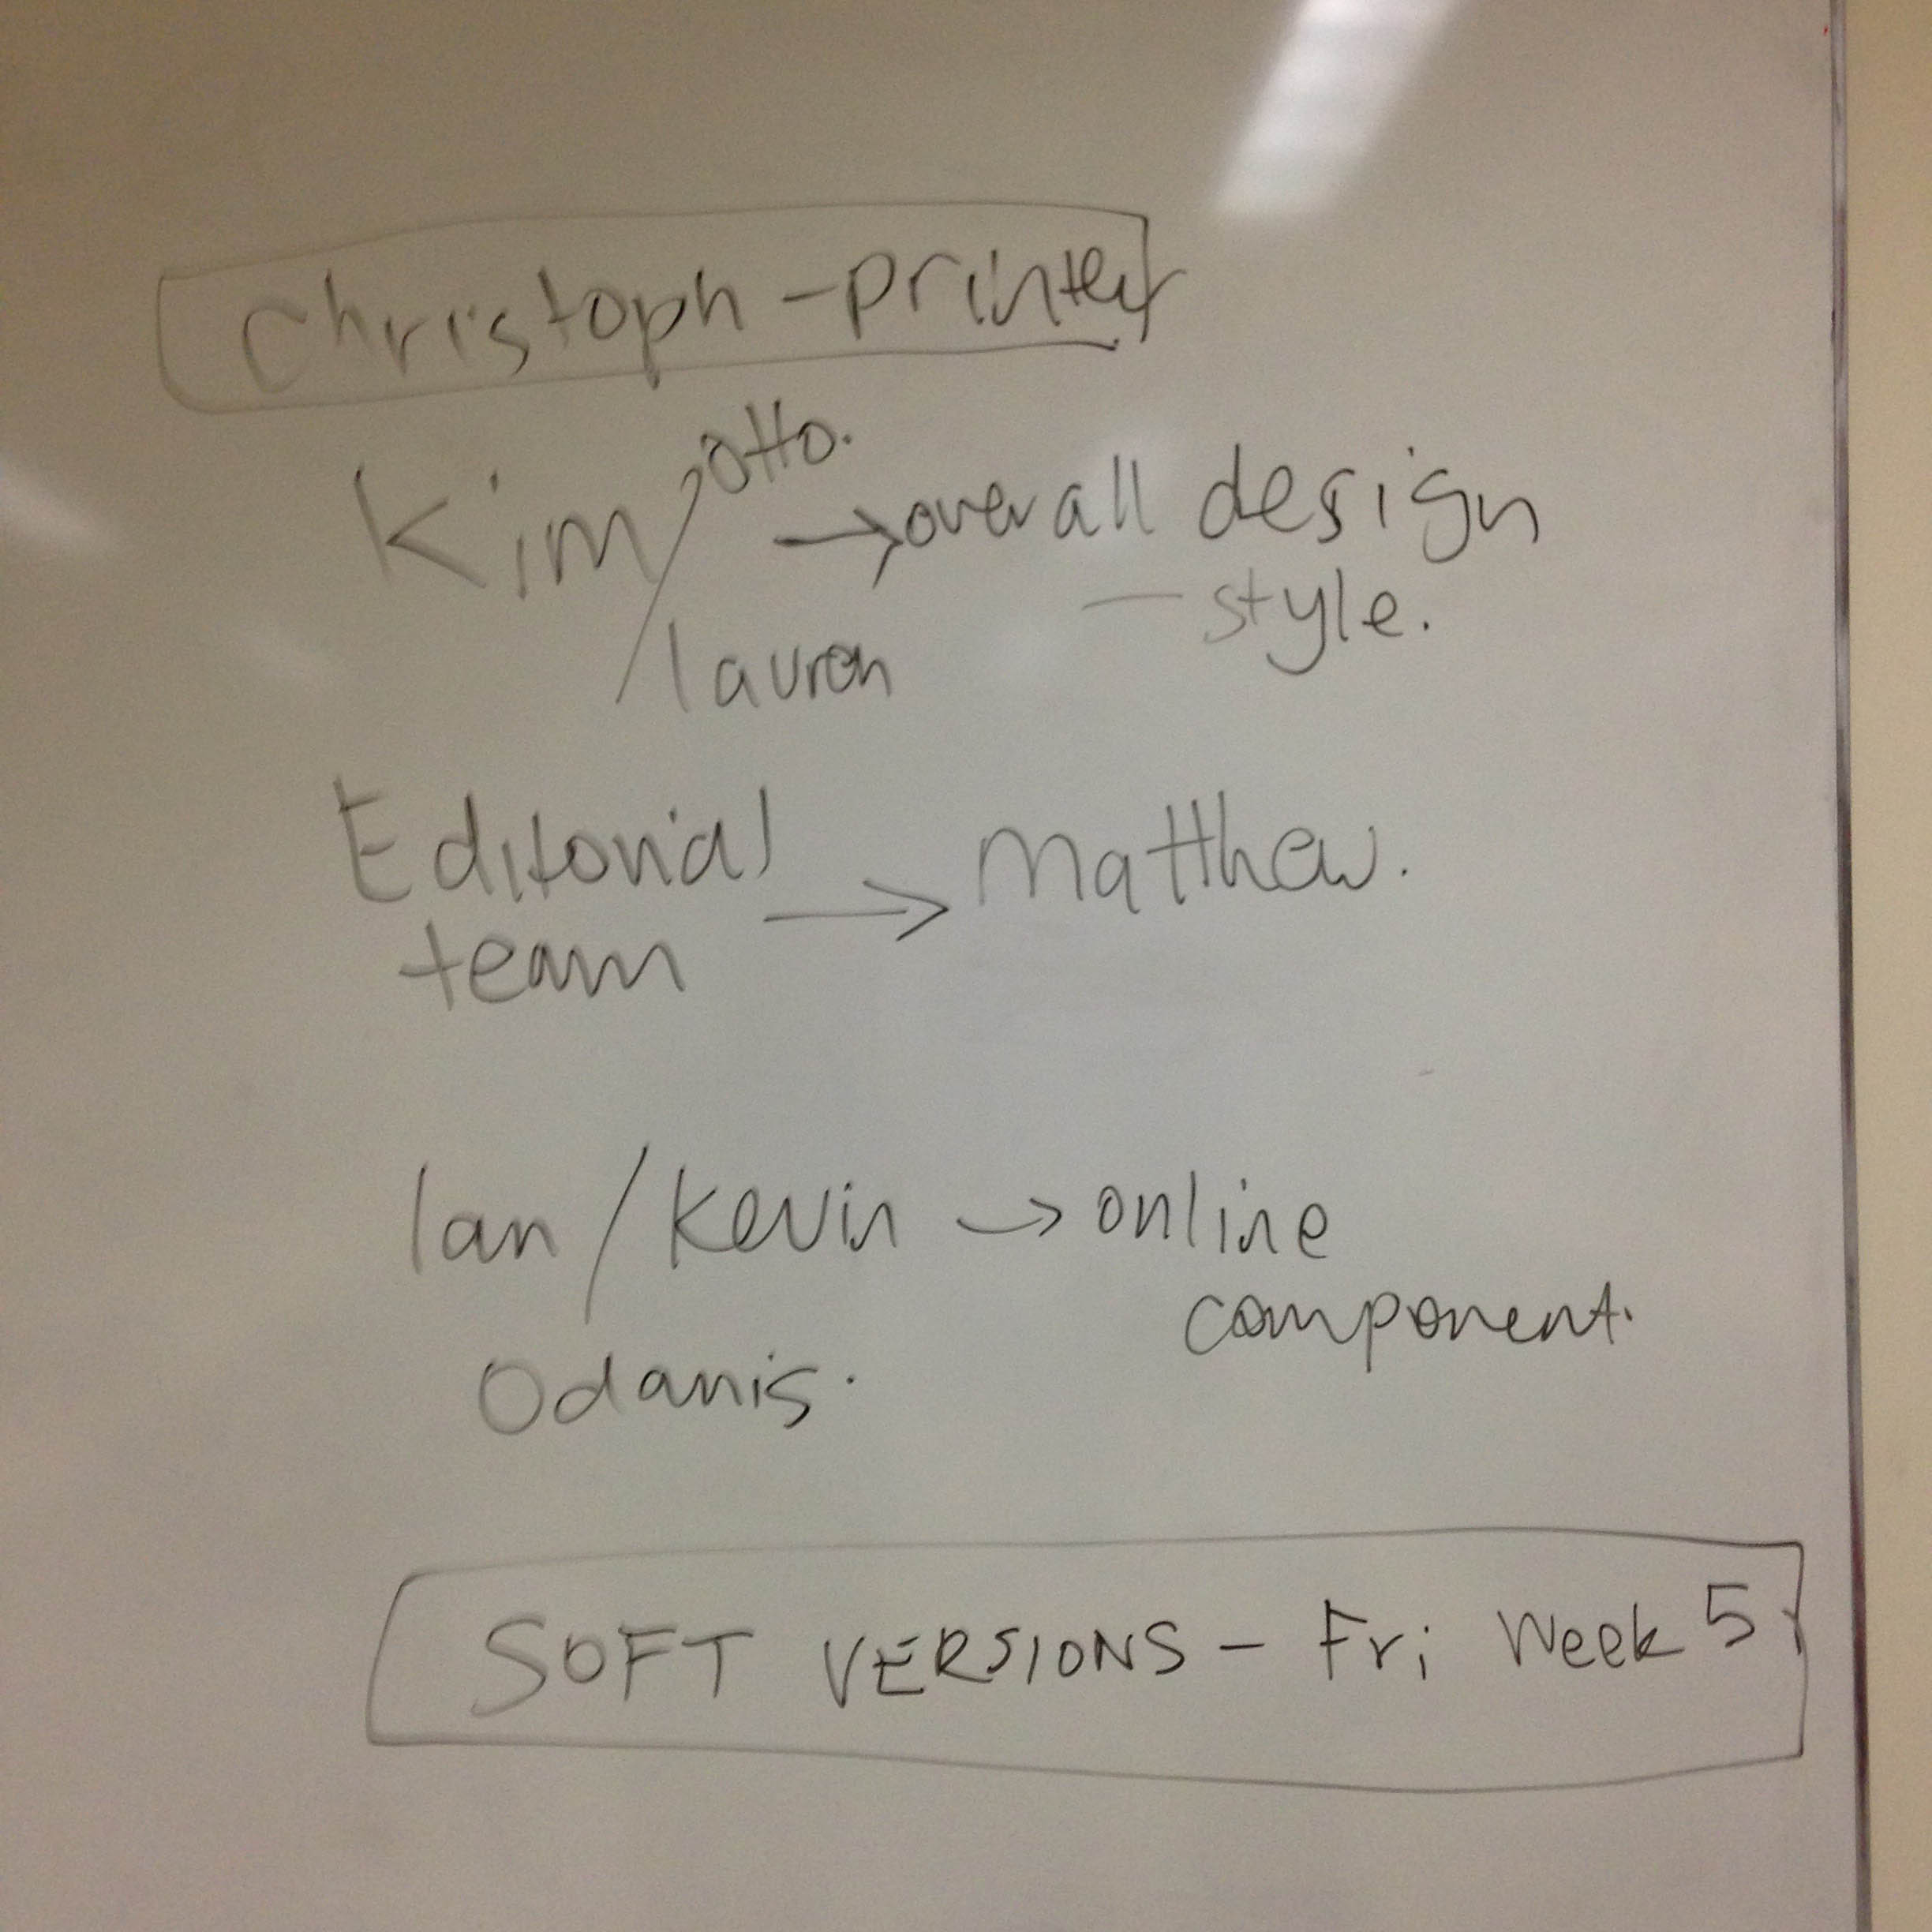 Christoph - printer
Kim / Otto. → overall design
lauren — style.
Editorial → Matthew.
team
Ian / Kevin → online
component.
Odanis.
SOFT VERSIONS - Fri Week 5